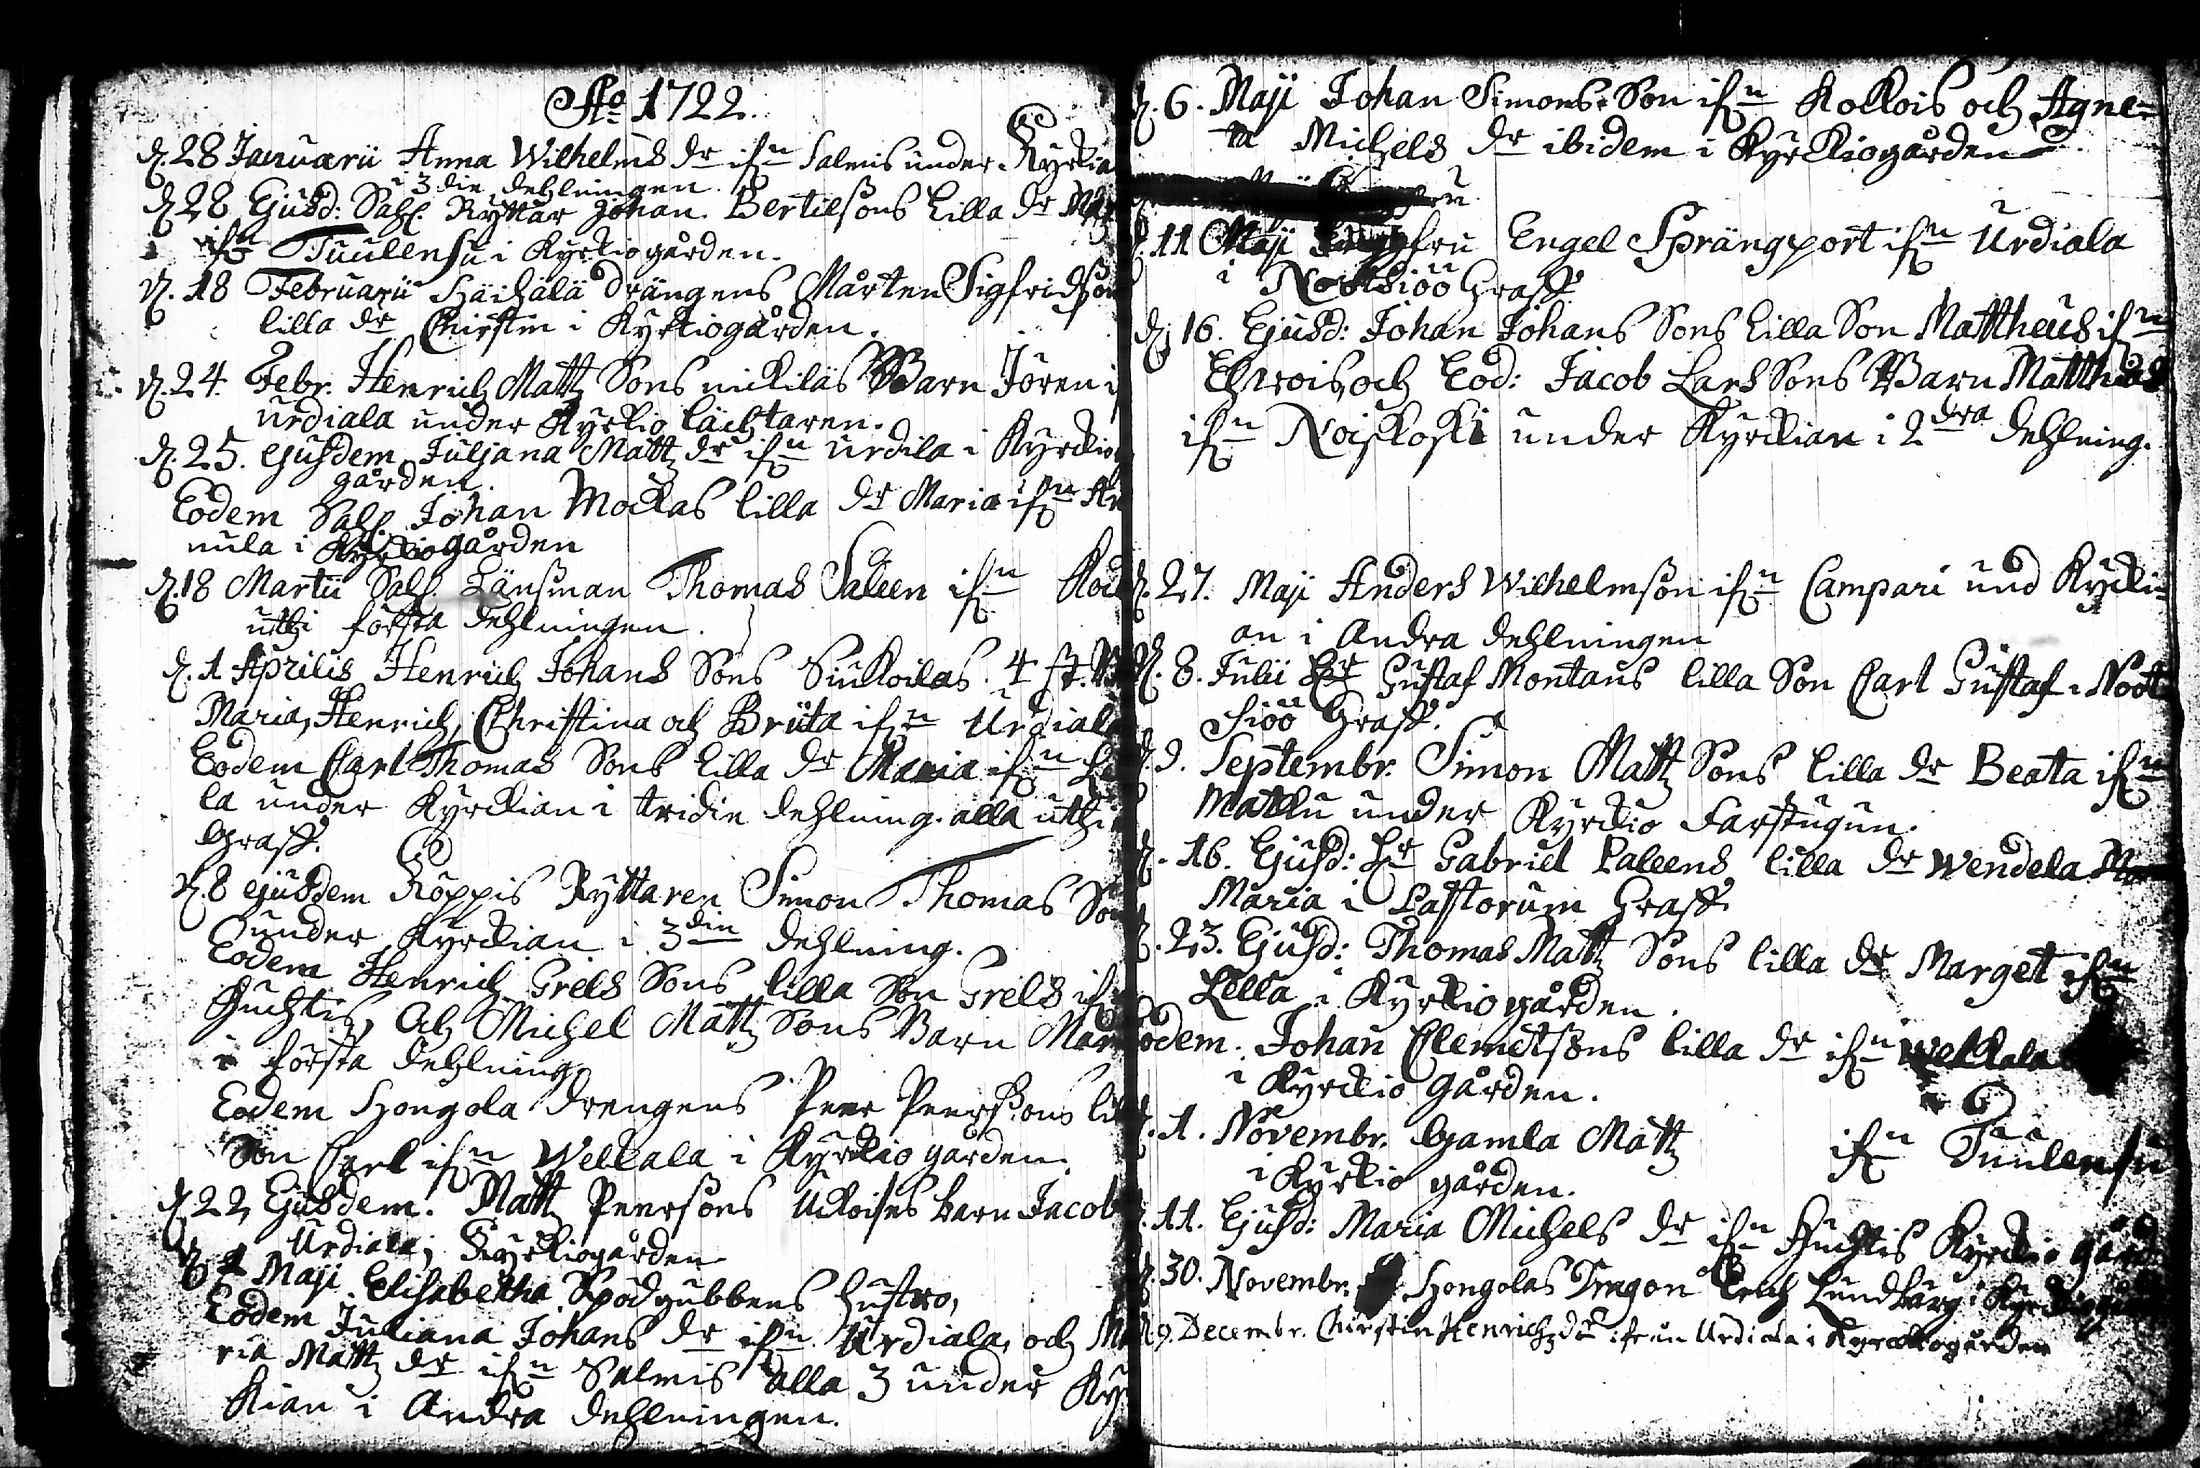 Ao 1722.
d. 28 Januarii Anna Wilhelms dr ifrn Salmis under Kyrkia
i 3 die dehlningen.
d. 28 Ejusd: Sahl. Ryttar Johan Bertilsons lilla dr
ifrn Tuulensu i Kyrkiogården.
d. 18 Februarii Häihälä Drängens Mårten Sigfridson
lilla dr Chirstin i Kyrkiogården.
d. 24. Febr. Henrich Mattz Sons nickiläs Barn Jören i
urdiala under Kyrkio läcktaren.
d. 25. ejusdem Juljana Mattz dr ifrn urdila i Kyrckio
gården.
Eodem Sahl. Johan Mockas lilla dr Maria ifrn An
nula i Kyrkiogården
d. 18 Martii Sahl. Länsman Thomas Saleen ifrn
uthi första dehlningen.
d. 1 Aprilis Henrich Johans Sons Siukoilas 4 st.
Maria, Henrich, Christina och Brita ifrn Urdiala
Eodem Carl Thomas Sons lilla dr Maria ifrn
la under Kyrckian i tridie dehlning. alla uthi
Graff.
d. 8 ejusdem Köppis Ryttaren Simon Thomas Son
under Kyrckian i 3 die dehlning.
Eodem Henrich Grels Sons lilla Son Grels ifrn
Huchtis, Och Michel Mattz Sons Barn
i första dehlning
Eodem Hongola drengens Peer Peersons lil
Son Carl ifrn Wellkala i Kyrckio garden.
d. 22 Ejusdem. Mattz Peersons Uckoises barn Jacob
Urdiala i Kyrkiogården
d. 1 Maji Elisabetha Spodgubbens hustro,
Eodem Juliana Johans dr ifrn Urdiala, och Ma
ria Mattz dr ifrn Salmis alla 3 under Kyr
kian i Andra dehlningen.
d. 6. Maji Johan Simons Son ifrn Kokkois och Agne-
ta Michels dr ibidem i Kyrckiogården
d. 11 Maji Jungfru Engel Sprängport ifrn Urdiala
i Nootsiöö Graff
d. 16. Ejusd: Johan Johans Sons lilla Son Mattheus ifrn
och Eod: Jacob Lars Sons Barn Mattheus
ifrn under Kyrckian i 2 dra dehlning.
d. 27. Maji Anders Wilhelmson ifrn Campari und Kyrcki-
an i Andra dehlningen
d. 8. Julii Hr Gustaf Montaus lilla Son Carl Gustaf i Noot
siöö Graff.
d. 9. Septembr. Simon Mattz Sons lilla dr Beata ifrn
Matku under Kyrckio Farstugun.
d. 16. Ejusd: Hr Gabriel Paleens lilla dr Wendela
Maria i Pastorum Graff
d. 23. Ejusd: Thomas Mattz Sons lilla dr Marget ifrn
i Kyrkiogården.
Eodem. Johan Clemetsons lilla dr ifrn Wellkala
i Kyrckio gården.
d. 1. Novembr. Gamla Mattz ifrn Tuulensu
i Kyrkio gården.
d. 11. Ejusd: Maria Michels dr ifrn Huchtis Kyrckio gård
d. 30. Novembr. Hongolas Dragon Erich Lundbarg i Kyrckio
d. 9. Decembr. Chirstin Henrichzdtr ifrån Urdiala i Kyrckiogården